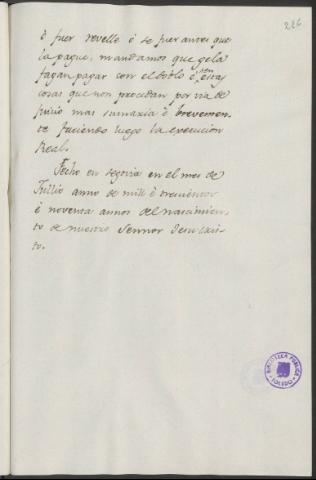 226
è fuer revelle è se fuer antes que
la pague, mandamos que gela
fagan pagar con el doblo è en estas
cosas que non procedan por via de
juicio mas sumaria è brevemen-
te faciendo luego la execucion
Real.
Fecho en segovia en el mes de
Jullio anno de mill è trecientos
è noventa annos del nascimien-
to de nuestro Sennor Jesu Chris-
to.
BIBLIOTECA PUBLICA
TOLEDO